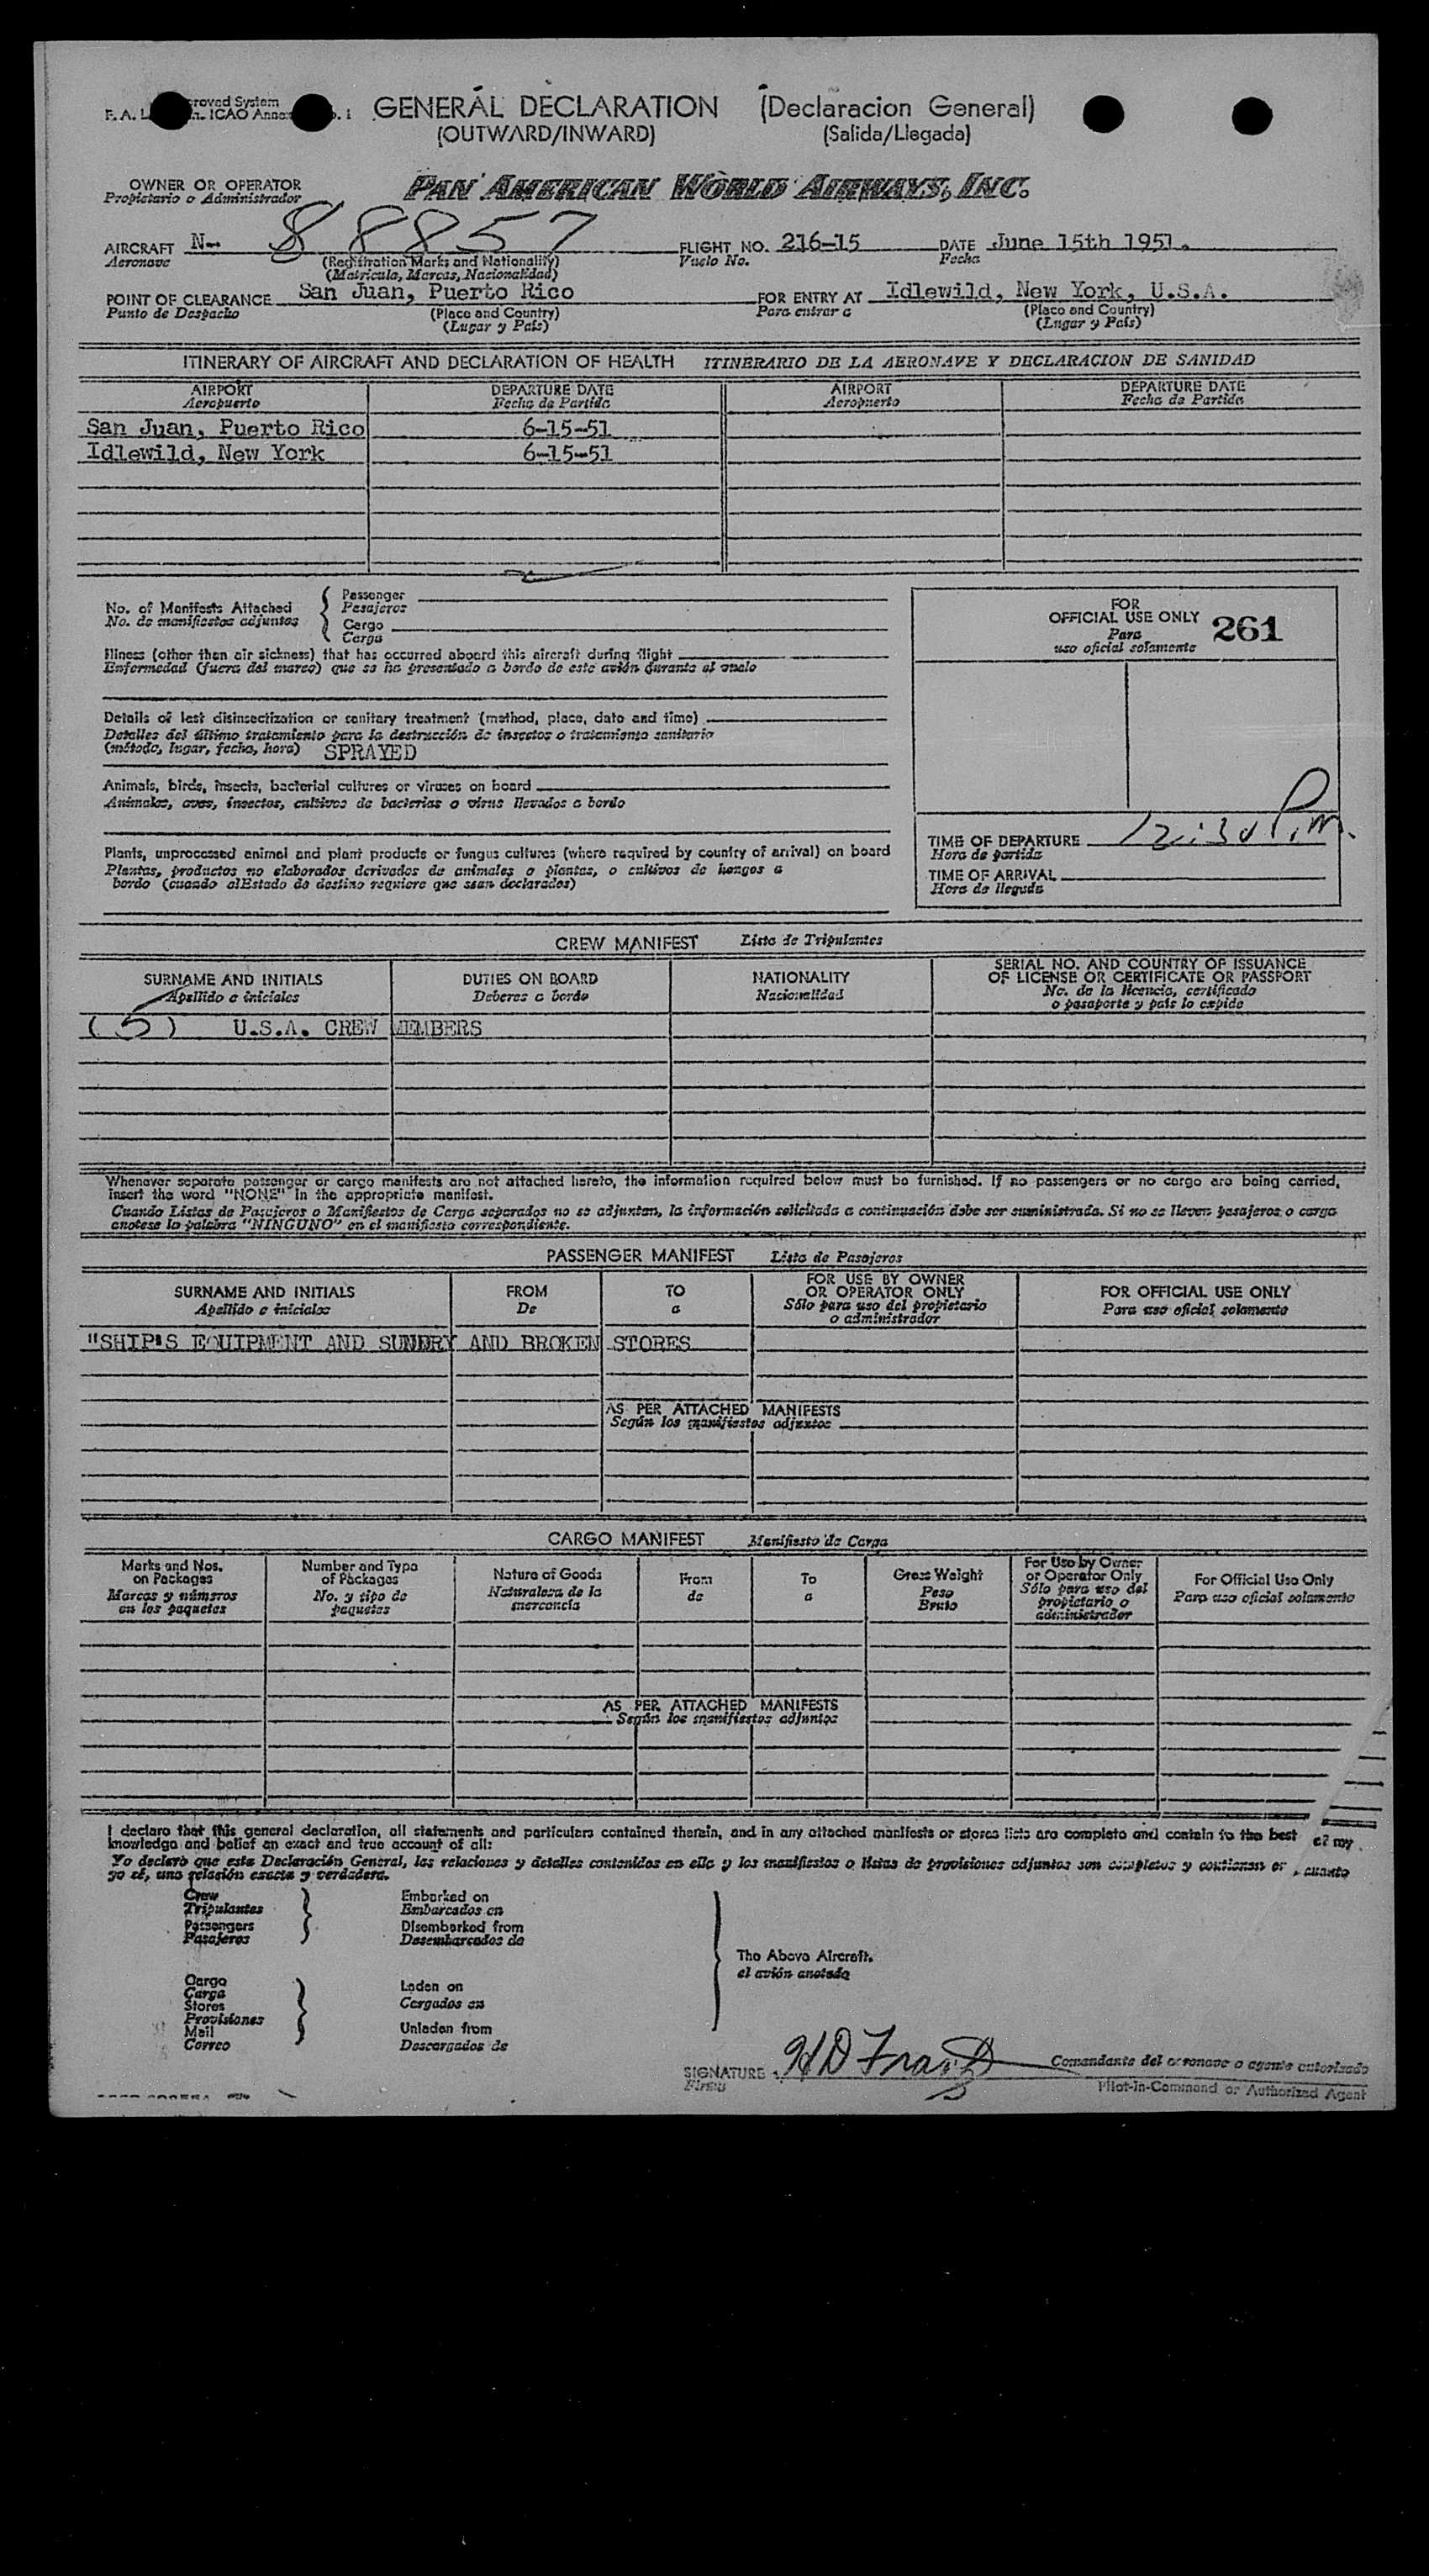 GENERAL DECLARATION (Declaracion General)
(OUTWARD/INWARD) (Salida/Llegada)
roved System
F. A. L ICAO Anne
OWNER OR OPERATOR PAN AMERICAN WORLD AIRWAYS, INC.
Propietario o Administrador
AIRCRAFT N- 88857 FLIGHT NO. 216-15 DATE June 15th 1951.
Aeronave (Registration Marks and Nationality) Vuelo No. Fecha
(Matricula, Marcas, Nacionalidad)
POINT OF CLEARANCE San Juan, Puerto Rico FOR ENTRY AT Idlewild, New York, U.S.A.
Punto de Despacho (Place and Country) Para entrar a (Place and Country)
(Lugar y País) (Lugar y País)
ITINERARY OF AIRCRAFT AND DECLARATION OF HEALTH ITINERARIO DE LA AERONAVE Y DECLARACION DE SANIDAD
AIRPORT DEPARTURE DATE AIRPORT DEPARTURE DATE
Aeropuerto Fecha de Partida Aeropuerto Fecha de Partida
San Juan, Puerto Rico 6-15-51
Idlewild, New York 6-15-51
No. of Manifests Attached { Passenger
No. de manifiestos adjuntos Pasajeros
Cargo
Carga
Illness (other than air sickness) that has occurred aboard this aircraft during flight
Enfermedad (fuera del mareo) que se ha presentado a bordo de este avión durante el vuelo
Details of last disinsectization or sanitary treatment (method, place, date and time)
Detalles del último tratamiento para la destrucción de insectos o tratamiento sanitario
(método, lugar, fecha, hora) SPRAYED
Animals, birds, insects, bacterial cultures or viruses on board
Animales, aves, insectos, cultivos de bacterias o virus llevados a bordo
Plants, unprocessed animal and plant products or fungus cultures (where required by country of arrival) on board
Plantas, productos no elaborados derivados de animales o plantas, o cultivos de hongos a
bordo (cuando alEstado de destino requiere que sean declarados)
FOR
OFFICIAL USE ONLY 261
Para
uso oficial solamente
TIME OF DEPARTURE 12:30 P.m.
Hora de partida
TIME OF ARRIVAL
Hora de llegada
CREW MANIFEST Lista de Tripulantes
SURNAME AND INITIALS DUTIES ON BOARD NATIONALITY SERIAL NO. AND COUNTRY OF ISSUANCE
OF LICENSE OR CERTIFICATE OR PASSPORT
Apellido e iniciales Deberes a bordo Nacionalidad No. de la licencia, certificado
o pasaporte y país lo expide
(5) U.S.A. CREW MEMBERS
Whenever separate passenger or cargo manifests are not attached hereto, the information required below must be furnished. If no passengers or no cargo are being carried,
insert the word "NONE" in the appropriate manifest.
Cuando Listas de Pasajeros o Manifiestos de Carga separados no se adjuntan, la información solicitada a continuación debe ser suministrada. Si no se llevan pasajeros o carga
anotese la palabra "NINGUNO" en el manifiesto correspondiente.
PASSENGER MANIFEST Lista de Pasajeros
SURNAME AND INITIALS FROM TO FOR USE BY OWNER FOR OFFICIAL USE ONLY
OR OPERATOR ONLY
Apellido e iniciales De a Sólo para uso del propietario Para uso oficial solamente
o administrador
"SHIP'S EQUIPMENT AND SUNDRY AND BROKEN STORES
AS PER ATTACHED MANIFESTS
Según los manifiestos adjuntos
CARGO MANIFEST Manifiesto de Carga
Marks and Nos. Number and Type Nature of Goods From To Gross Weight For Use by Owner For Official Use Only
on Packages of Packages or Operator Only
Marcas y números No. y tipo de Naturaleza de la de a Peso Sólo para uso del Para uso oficial solamente
en los paquetes paquetes mercancía Bruto propietario o
administrador
AS PER ATTACHED MANIFESTS
Según los manifiestos adjuntos
I declare that this general declaration, all statements and particulars contained therein, and in any attached manifests or stores lists are complete and contain to the best of my
knowledge and belief an exact and true account of all:
Yo declaro que esta Declaración General, las relaciones y detalles contenidos en ella y los manifiestos o listas de provisiones adjuntos son completos y contienen cuanto
yo sé, una relación exacta y verdadera.
Crew Embarked on
Tripulantes Embarcados en
Passengers Disembarked from
Pasajeros Desembarcados de
The Above Aircraft.
el avión anotado
Cargo Laden on
Carga Cargados en
Stores
Provisiones
Mail Unladen from
Correo Descargados de
SIGNATURE Comandante del aeronave o agente autorizado
Firma Pilot-in-Command or Authorized Agent